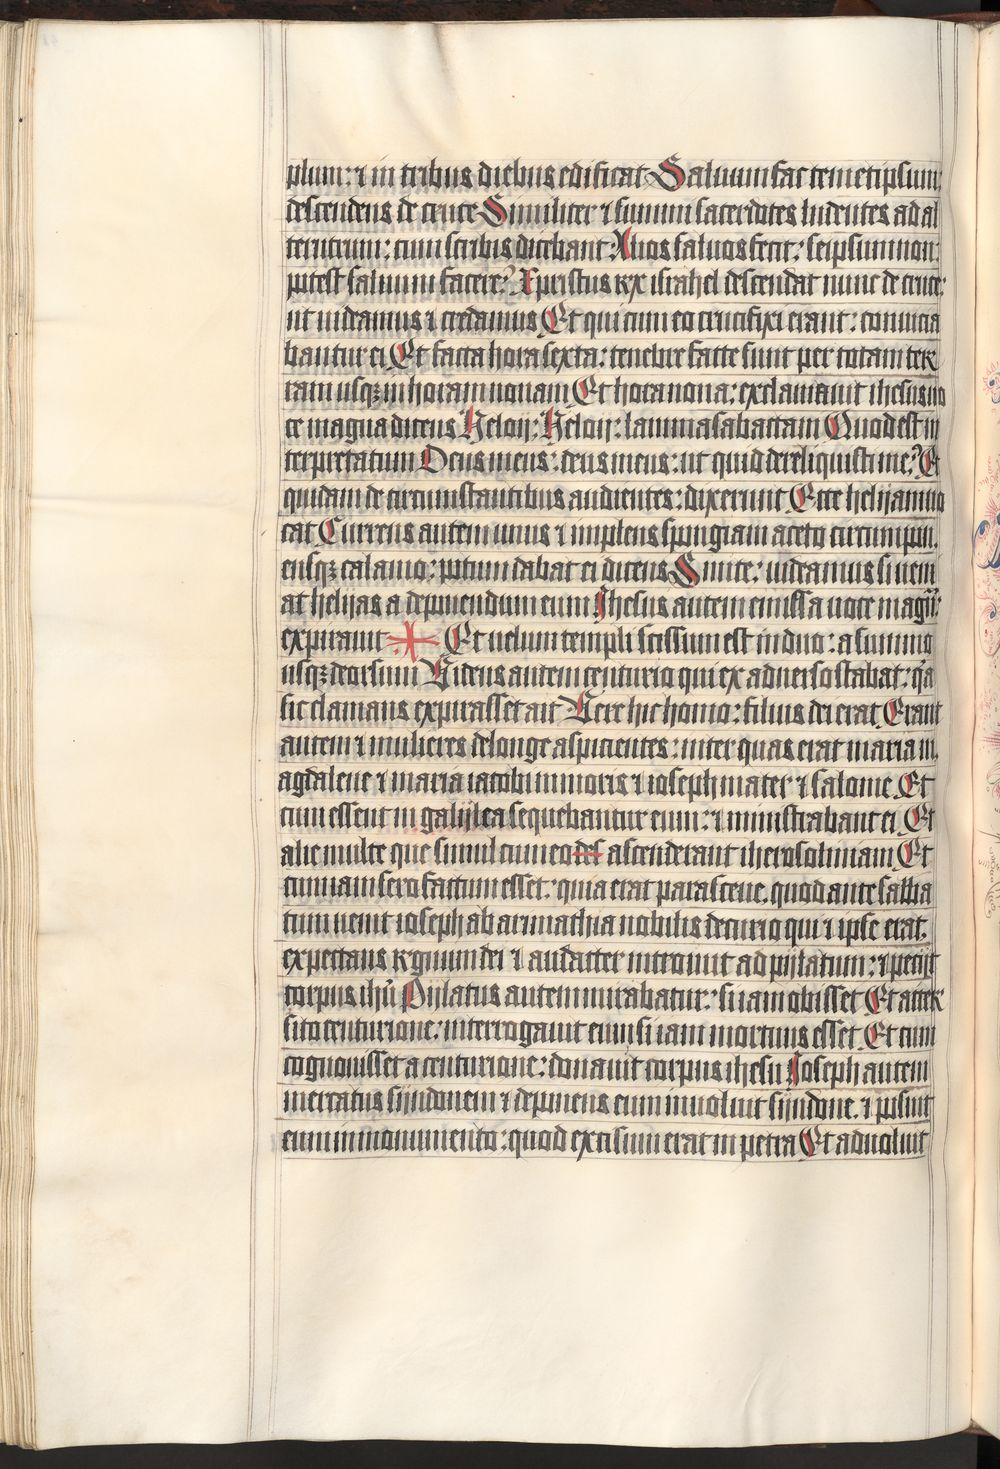 plum: ⁊ in tribus diebus edificat Saluum fac temetipsum:
descendens de cruce Similiter ⁊ summi sacerdotes ludentes ad al
terutrum: cum scribis dicebant: Alios saluos fecit: seipsum non
potest saluum facere? Xpristus rex israhel descendat nunc de cruce:
ut uideamus ⁊ credamus Et qui cum eo crucifixi erant: conuicia
bantur ei Et facta hora sexta: tenebre facte sunt per totam ter
ram usqꝫ in horam nonam Et hora nona: exclamauit ihesus uo
ce magna dicens Heloij: Heloij: lamma sabactani Quod est in
terpretatum Deus meus: deus meus: ut quid dereliquisti me? Et
quidam de circumstantibus audientes: dixerunt Ecce helijam uo
cat Currens autem unus ⁊ implens spongiam aceto circumpon
ensqꝫ calamo: potum dabat ei dicens Sinite: uideamus si ueni
at helijas a deponendum eum Ihesus autem emissa uoce magna:
expirauit Et uelum templi scissum est in duo: a summo
usqꝫ deorsum Videns autem centurio qui ex aduerso stabat: q̄a
sic clamans expirasset ait Vere hic homo: filius dei erat Erant
autem ⁊ mulieres delonge aspicientes: inter quas erat maria m
agdalene ⁊ maria iacobi minoris ⁊ ioseph mater ⁊ salome Et
cum essent in galijlea sequebantur eum: ⁊ ministrabant ei Et
alie multe que simul cum eo des ascenderant iherosolimam Et
cum iam sero factum esset: quia erat parasceue, quod ante sabba
tum uenit ioseph ab arimathia nobilis decurio qui ⁊ ipse erat
expectans regnum dei ⁊ audacter introiuit ad pijlatum: ⁊ pecijt
corpus ihū Pijlatus autem mirabatur: si iam obisset Et accer
sito centurione: interrogauit eum si iam mortuus esset Et cum
cognouisset a centurione: donauit corpus ihesu Ioseph autem
mercatus sijndonem ⁊ deponens eum inuoluit sijndone. ⁊ posuit
eum in monumento: quod excisum erat in petra Et aduoluit